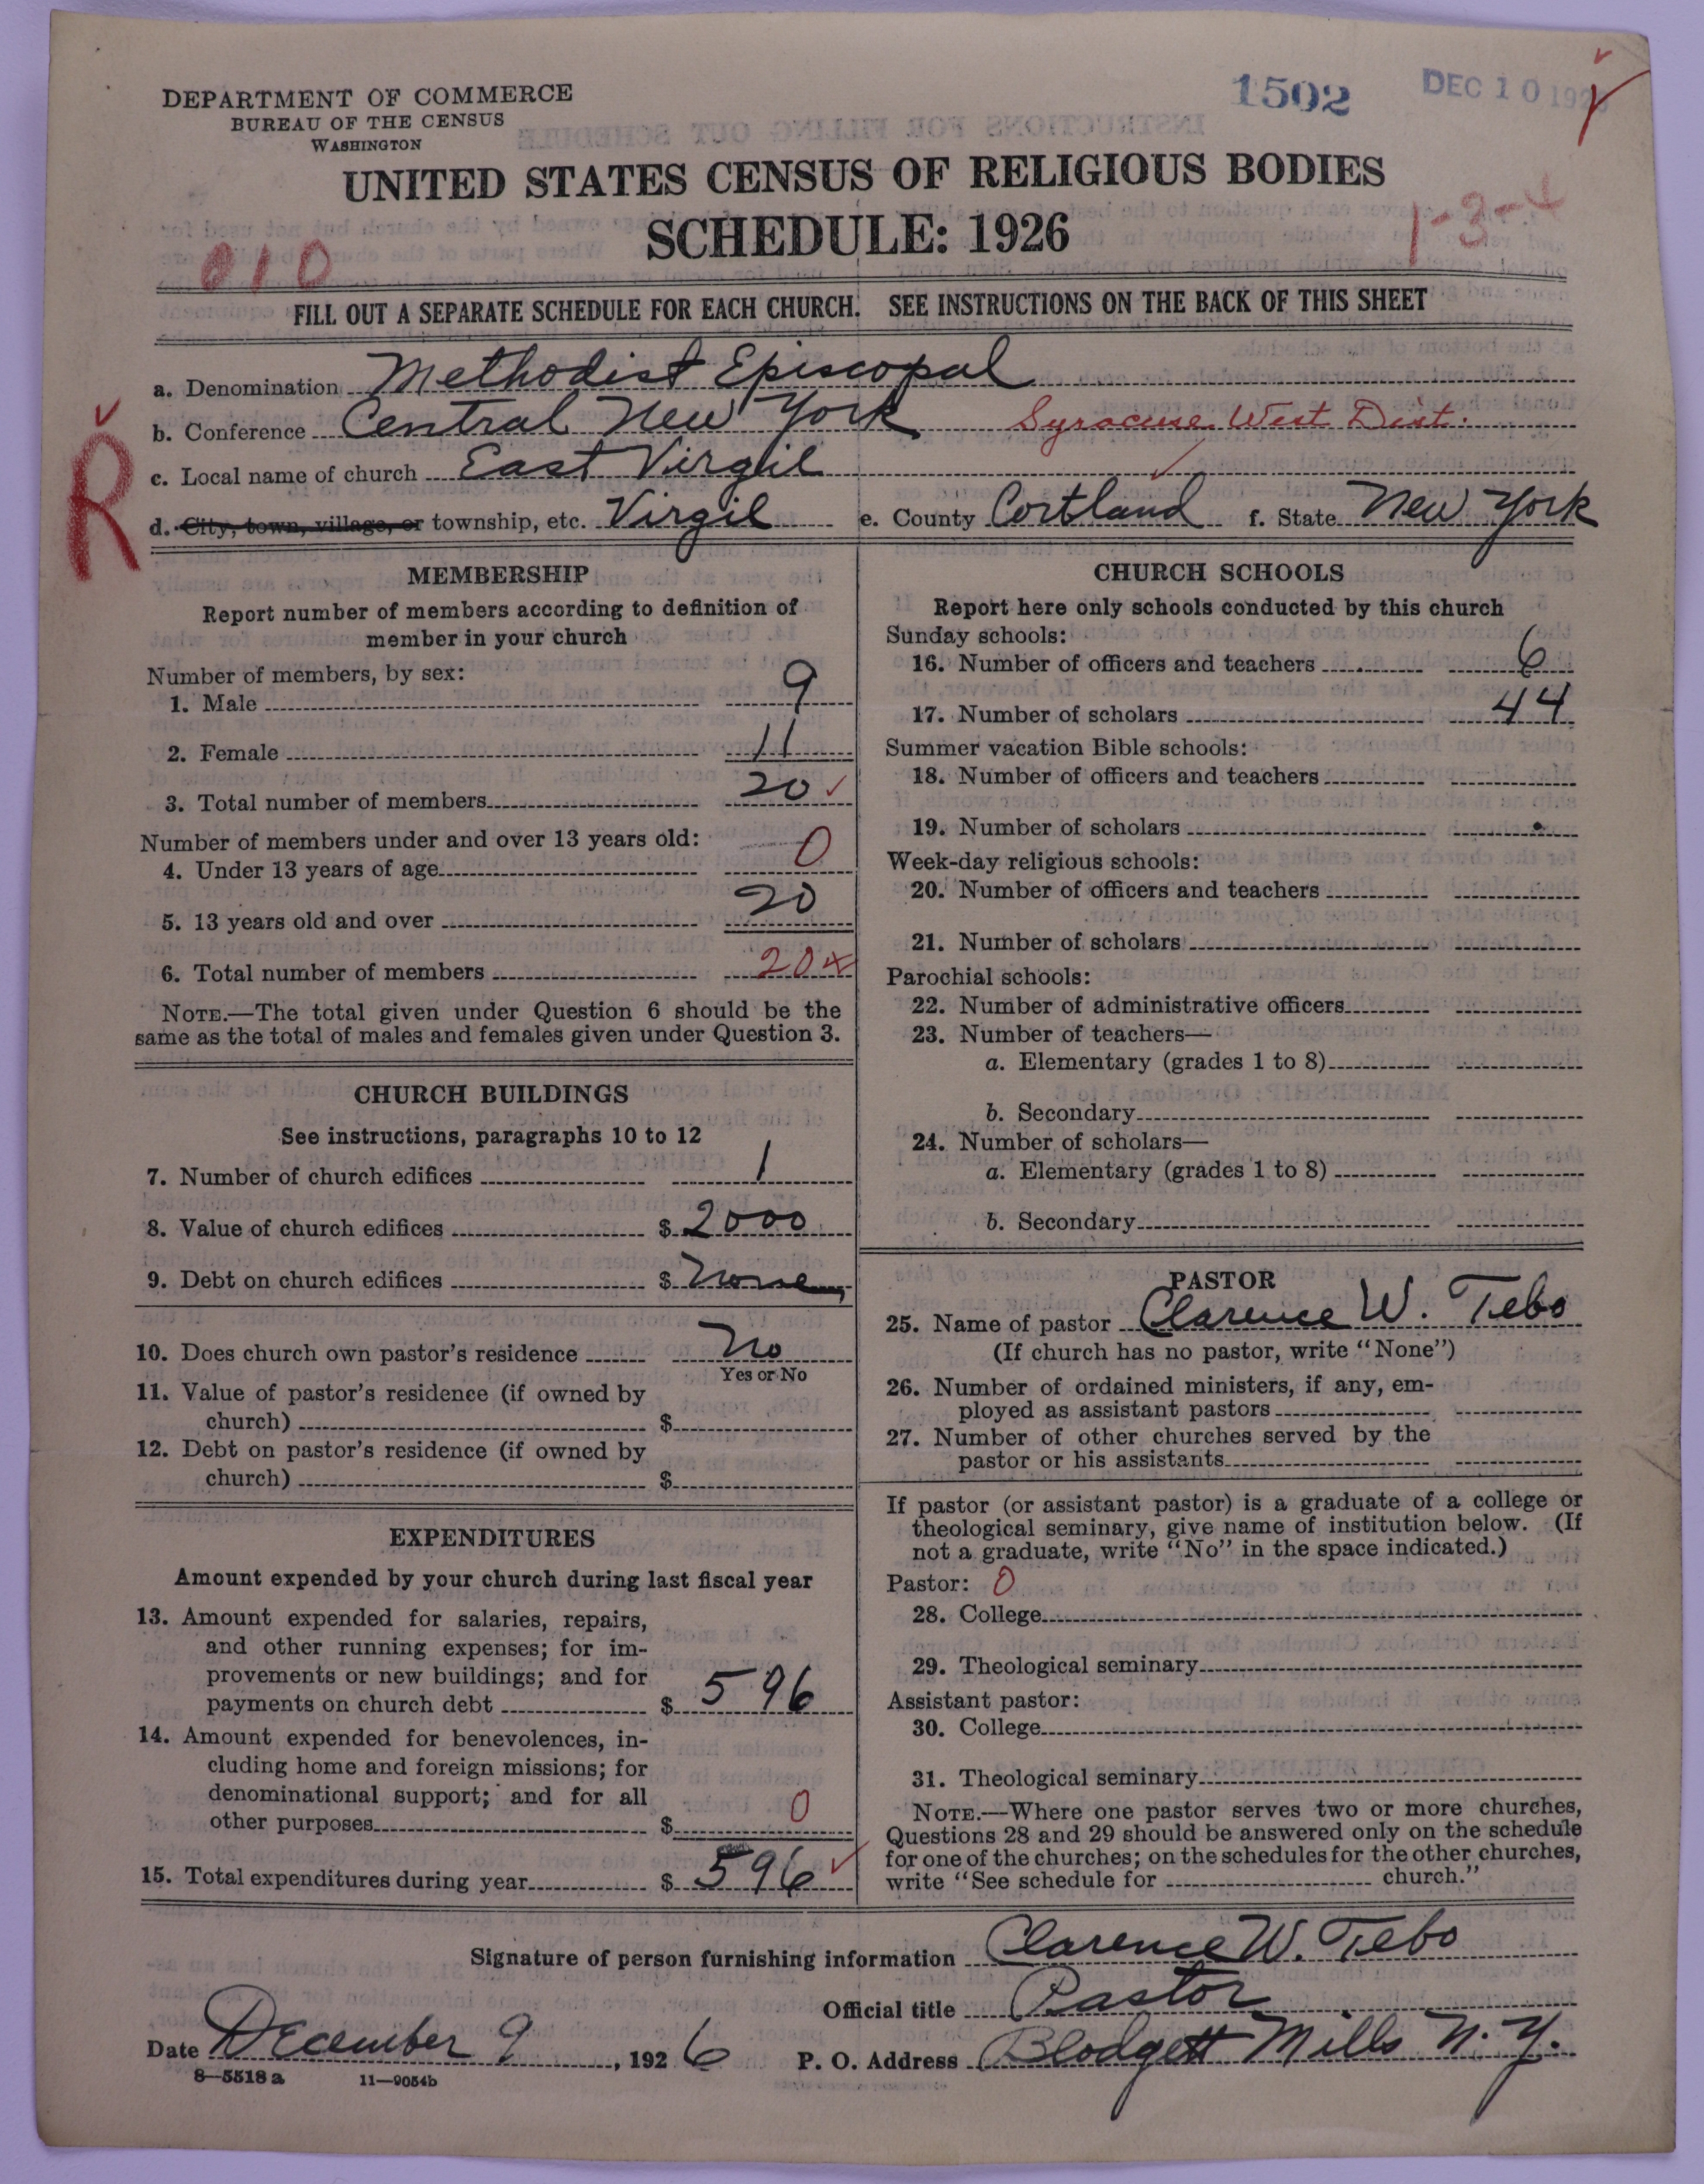 DEPARTMENT OF COMMERCE
BUREAU OF THE CENSUS
WASHINGTON
1502
DEC 10 192
UNITED STATES CENSUS OF RELIGIOUS BODIES
SCHEDULE: 1926
010
1-3-4
FILL OUT A SEPARATE SCHEDULE FOR EACH CHURCH. SEE INSTRUCTIONS ON THE BACK OF THIS SHEET
a. Denomination Methodist Episcopal
b. Conference Central New York Syracuse West Dist.
c. Local name of church East Virgil
R
d. City, town, village, or township, etc. Virgil e. County Cortland f. State New York
MEMBERSHIP
Report number of members according to definition of
member in your church
Number of members, by sex:
1. Male 9
2. Female 11
3. Total number of members 20
Number of members under and over 13 years old:
4. Under 13 years of age 0
5. 13 years old and over 20
6. Total number of members 20
NOTE.—The total given under Question 6 should be the
same as the total of males and females given under Question 3.
CHURCH BUILDINGS
See instructions, paragraphs 10 to 12
7. Number of church edifices 1
8. Value of church edifices $ 2000
9. Debt on church edifices $ None
10. Does church own pastor's residence No
Yes or No
11. Value of pastor's residence (if owned by
church) $
12. Debt on pastor's residence (if owned by
church) $
EXPENDITURES
Amount expended by your church during last fiscal year
13. Amount expended for salaries, repairs,
and other running expenses; for im-
provements or new buildings; and for
payments on church debt $ 596
14. Amount expended for benevolences, in-
cluding home and foreign missions; for
denominational support; and for all
other purposes $ 0
15. Total expenditures during year $ 596
CHURCH SCHOOLS
Report here only schools conducted by this church
Sunday schools:
16. Number of officers and teachers 6
17. Number of scholars 44
Summer vacation Bible schools:
18. Number of officers and teachers
19. Number of scholars
Week-day religious schools:
20. Number of officers and teachers
21. Number of scholars
Parochial schools:
22. Number of administrative officers
23. Number of teachers—
a. Elementary (grades 1 to 8)
b. Secondary
24. Number of scholars—
a. Elementary (grades 1 to 8)
b. Secondary
PASTOR
25. Name of pastor Clarence W. Tebo
(If church has no pastor, write "None")
26. Number of ordained ministers, if any, em-
ployed as assistant pastors
27. Number of other churches served by the
pastor or his assistants
If pastor (or assistant pastor) is a graduate of a college or
theological seminary, give name of institution below. (If
not a graduate, write "No" in the space indicated.)
Pastor: 0
28. College
29. Theological seminary
Assistant pastor:
30. College
31. Theological seminary
NOTE.—Where one pastor serves two or more churches,
Questions 28 and 29 should be answered only on the schedule
for one of the churches; on the schedules for the other churches,
write "See schedule for church."
Signature of person furnishing information Clarence W. Tebo
Official title Pastor
Date December 9, 1926 P. O. Address Blodgett Mills N. Y.
8—5518 a 11—9054b